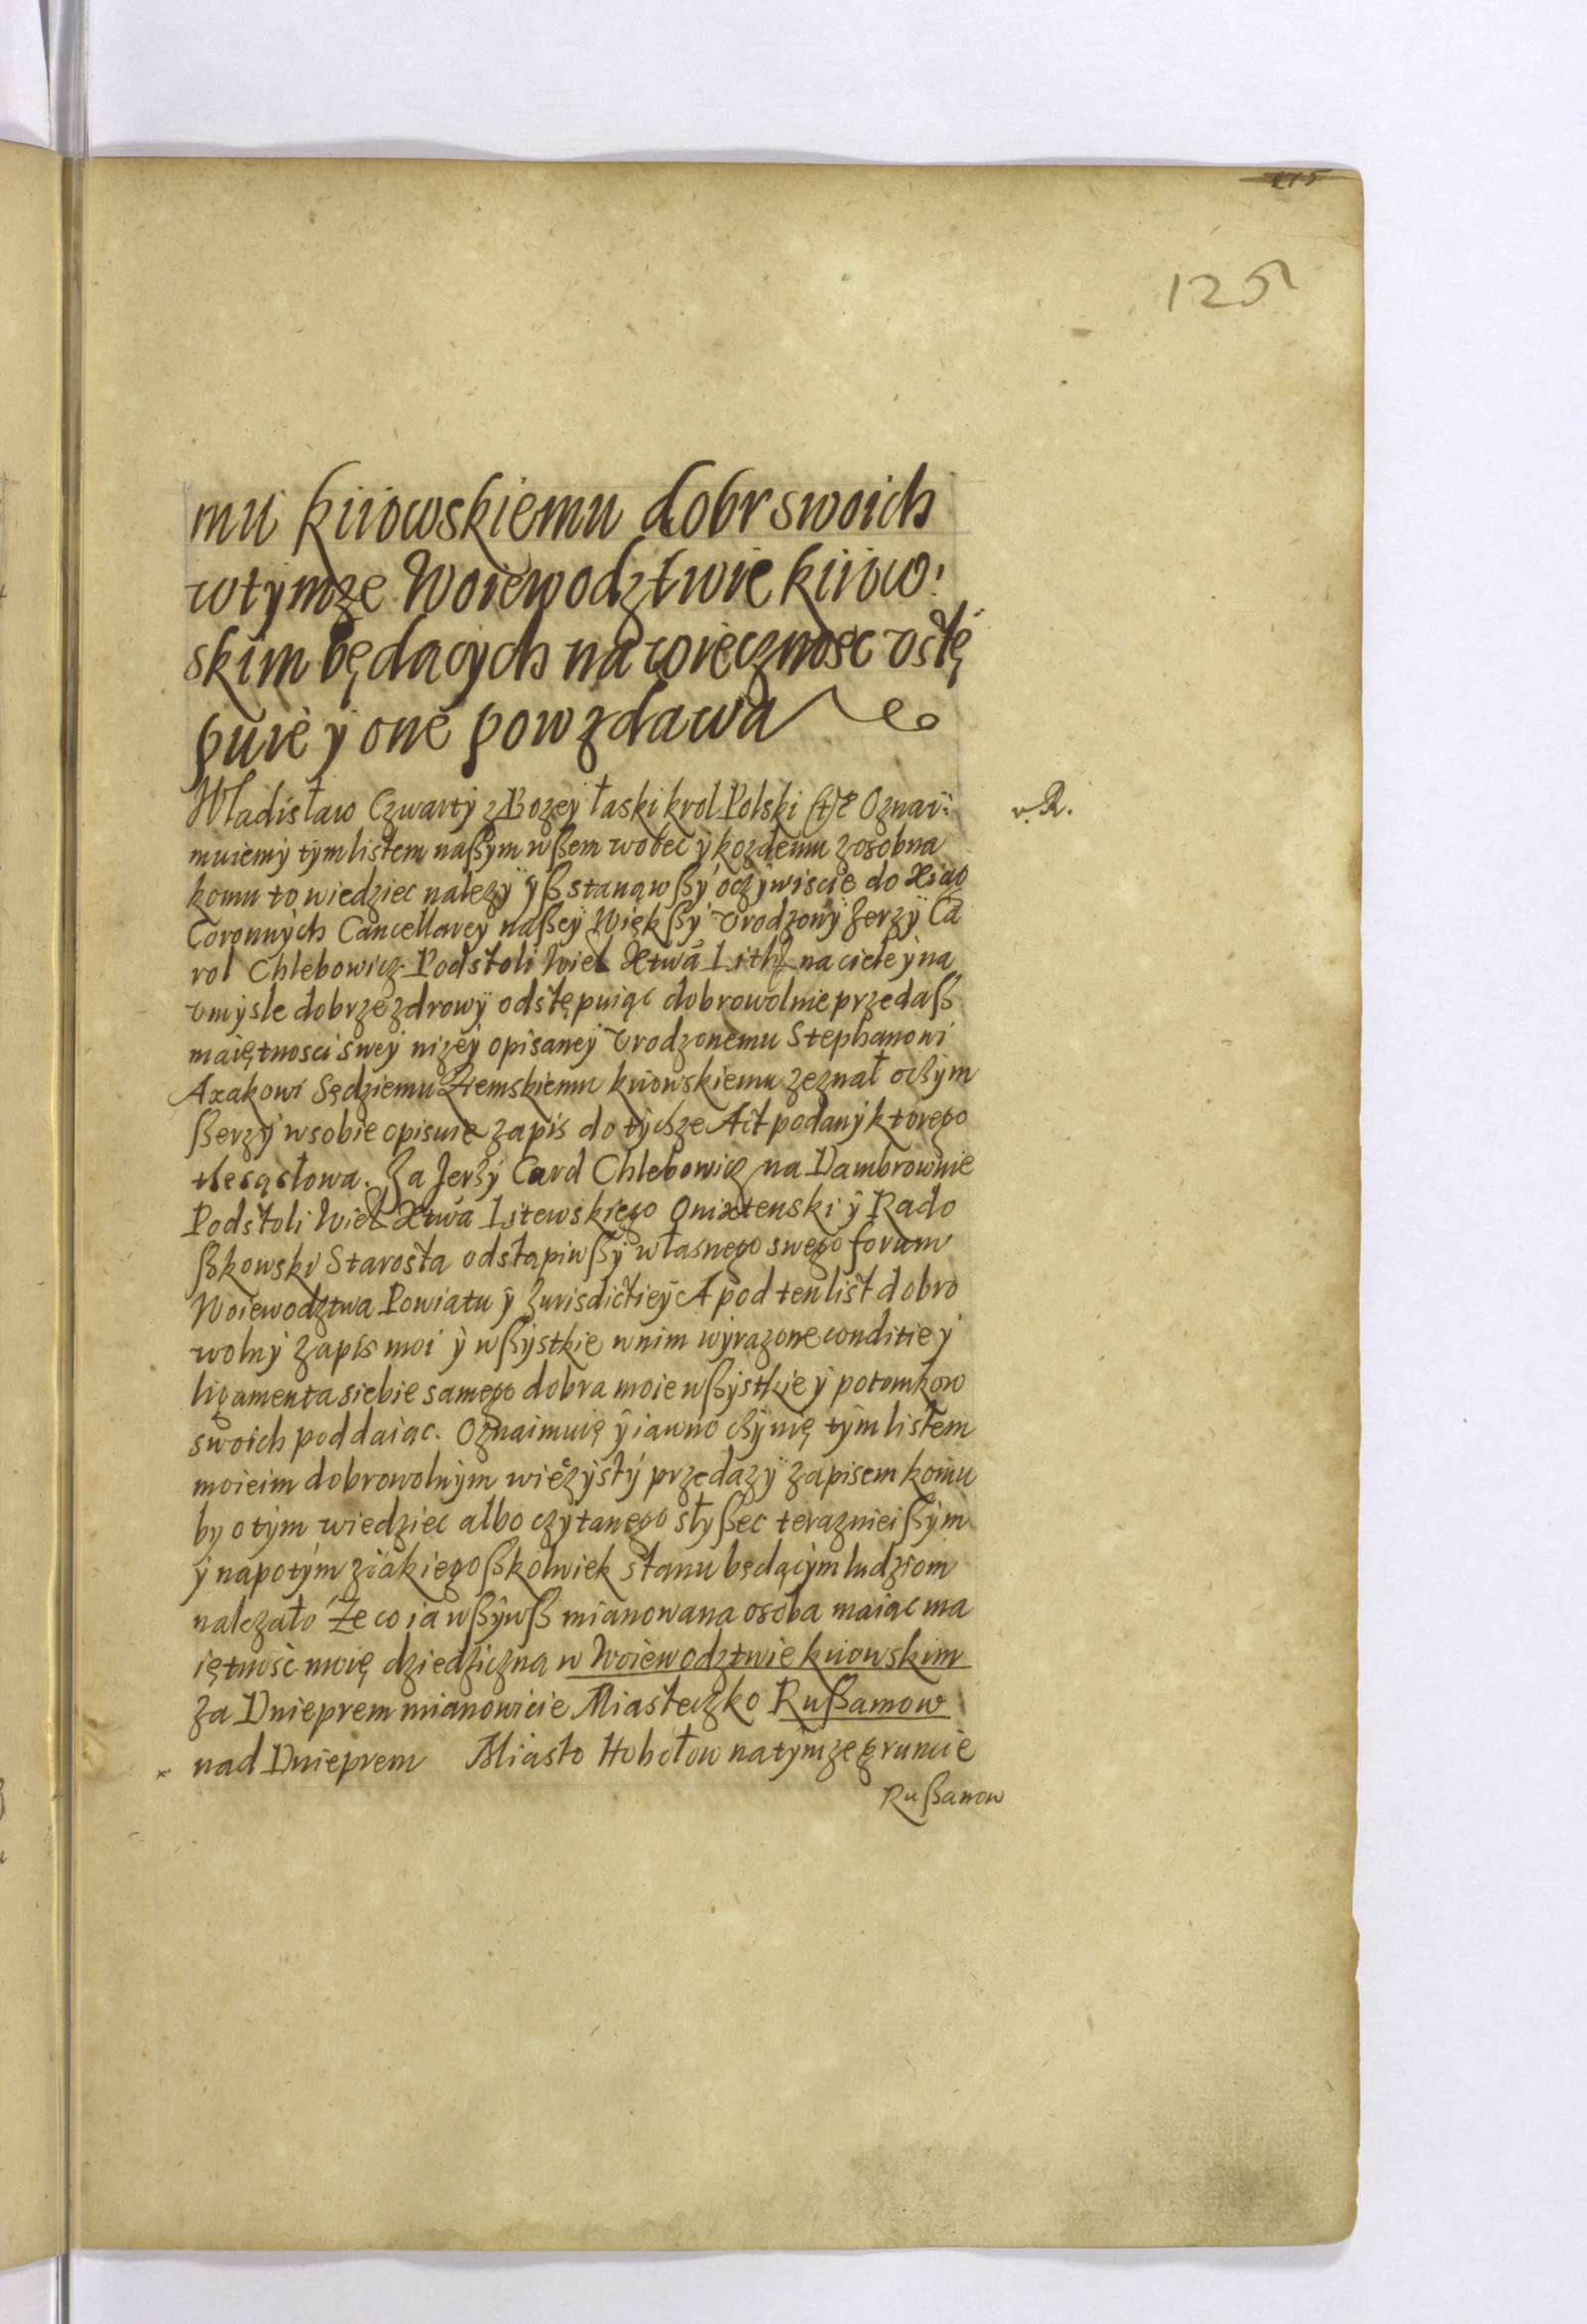 125
mu kiiowskiemu dobr swoich
wtymze Woiewodztwie kiiow:
skim będacych na wiecznosc ustę
puie y one powzdawa
Władisław Czwarty z Bozey łaski krol Polski etc Oznai: v. R.
muiemy tym listem naßym wßem wobec y kozdemu zosobna
komu to wiedziec nalezy yß stanąwßy oczywiscie do Xiąg
Coronnych Cancellarey naßey Więkßy Urodzony Jerzy Ca
rol Chlebowicz Podstoli Wiel Xtwa Lith na ciele y na
umysle dobrze zdrowy odstępuiąc dobrowolnie przedaß
maiętnosci swey nizey opisaney Urodzonemu Stephanowi
Axakowi Sędziemu Ziemskiemu kiiowskiemu zeznał o czym
ßerzy wsobie opisuie zapis do tychze Act podany ktorego
te są słowa. Ja Jerzy Carol Chlebowicz na Dambrownie
Podstoli Wiel Xtwa Litewskiego Onixtenski y Rado
ßkowski Starosta odstąpiwßy własnego swego forum
Woiewodztwa Powiatu y Jurisdictiey A pod ten list dobro
wolny zapis moi y wßystkie wnim wyrazone conditie y
ligamenta siebie samego dobra moie wßystkie y potomkow
swoich poddaiąc. Oznaimuię y iawno czynię tym listem
moieim dobrowolnym wieczysty przedazy zapisem komu
by o tym wiedziec albo czytanego słyßec teraznieißym
y napotym ziakiegoßkolwiek stanu będącym ludziom
nalezało Ze co ia wßywß mianowana osoba maiąc ma
iętnosc moię dziedziczną w Woiewodztwie kiiowskim
za Dnieprem mianowicie Miasteczko Rußamow
nad Dnieprem Miasto Hohołow na tymze gruncie
Rußanow